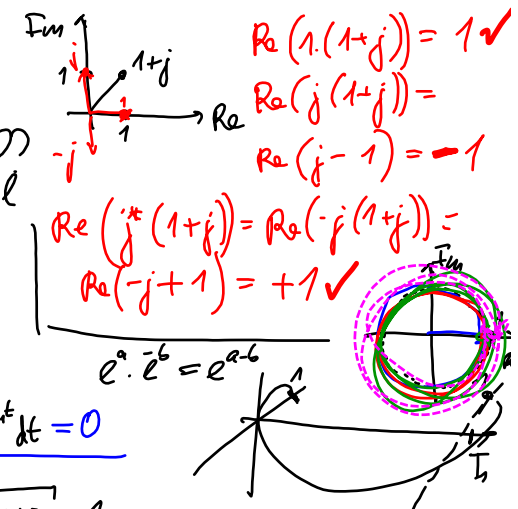 Im
j
1
1+j
1
1
Re
-j
Re(1.(1+j)) = 1 ✓
Re(j(1+j)) =
Re(j-1) = -1
Re(j*(1+j)) = Re(-j(1+j)) =
Re(-j+1) = +1 ✓
Im
e^a . e^-b = e^a-b
dt = 0
1